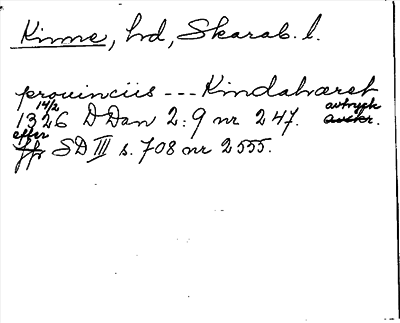 Kinne, hd, Skarab. l.
provinciis --- Kindahæret
14/2 avtryck
1326 DDan 2:9 nr 247. avskr.
efter
jfr SD III s. 708 nr 2555.